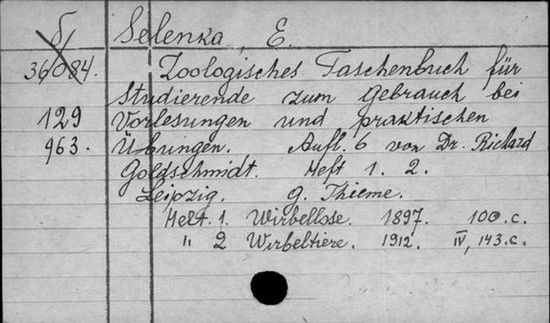 Б/ Selenka, E.
36084. Zoologisches Taschenbuch für
Studierende zum Gebrauch bei
129 Vorlesungen und praktischen
963. Übungen. Aufl. 6 von Dr. Richard
Goldschmidt. Heft 1. 2.
Leipzig. G. Thieme.
Heft. 1. Wirbellose. 1897. 100. c.
" 2 Wirbeltiere. 1912. IV, 143. c.